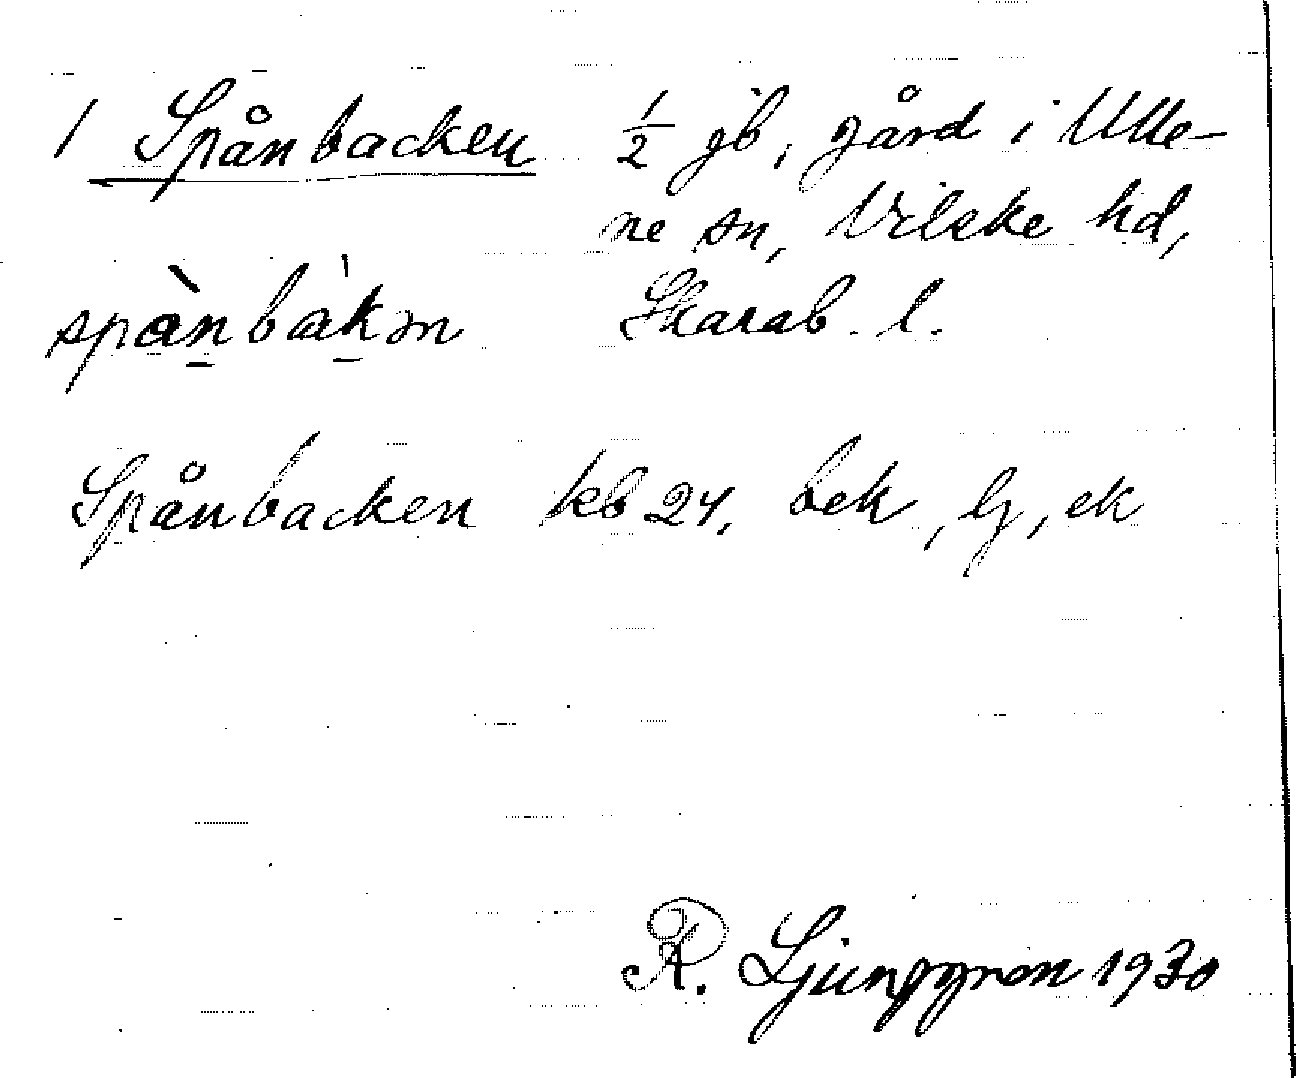 1 Spånbacken ½ jb, gård i Ulle-
ne sn, Vilske hd,
spànbàkən Skarab. l.
Spånbacken kb 24, bek, lj, ek
R. Ljunggren 1930